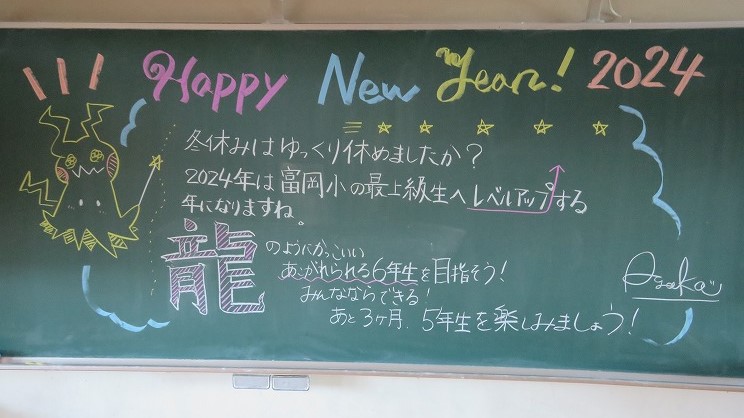 Happy New Year! 2024
冬休みはゆっくり休めましたか？
2024年は富岡小の最上級生へレベルアップする
年になりますね。
龍のようにかっこいい
あこがれられる6年生を目指そう！
みんなならできる！
あと3ヶ月、5年生を楽しみましょう！
Asuka